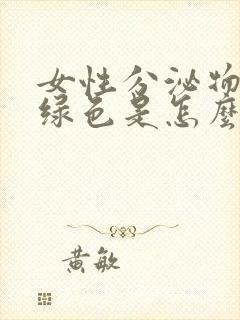 女性分泌物
绿色是怎麼
黄敏